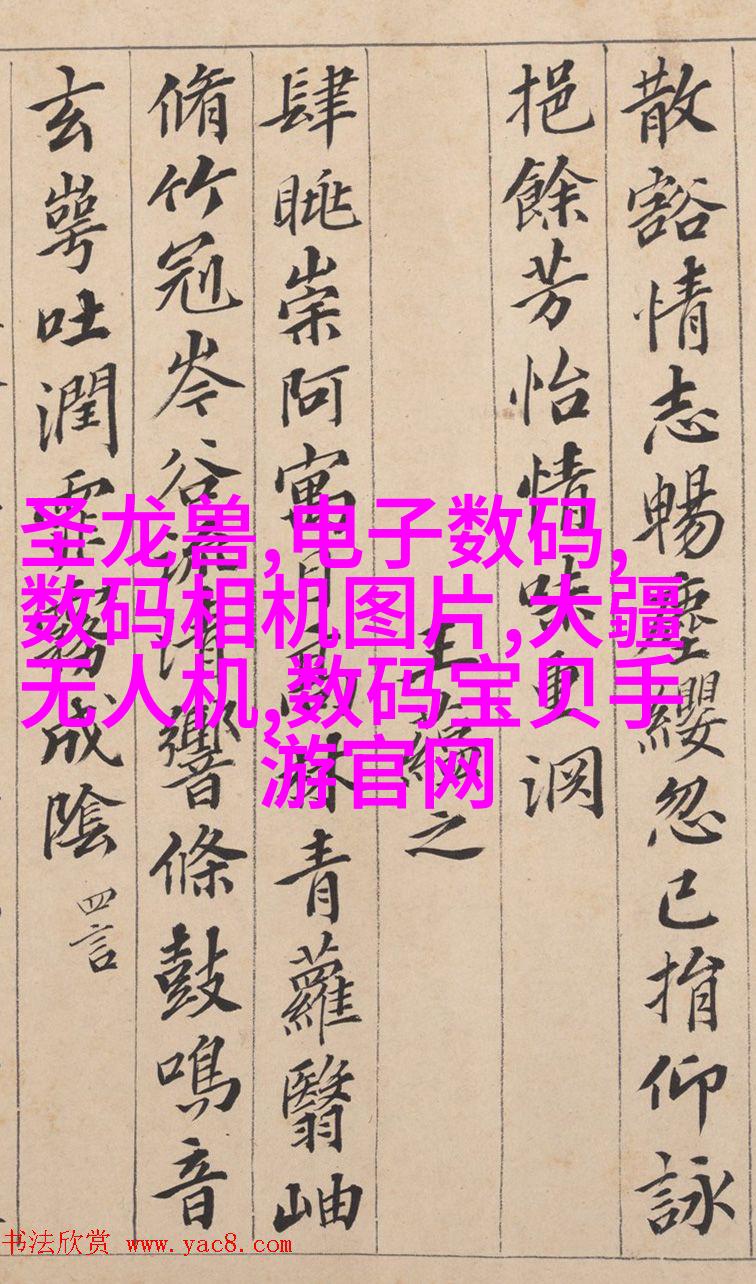 散豁情志暢塵纓忽已捐仰詠
挹餘芳怡情味重渊
王蘊之
肆眺崇阿寓目高林青蘿翳岫
脩竹冠岑谷流清響條鼓鳴音
玄崿吐潤霏霧成陰 四言
圣龙兽,电子数码,
数码相机图片,大疆
无人机,数码宝贝手
游官网
书法欣赏 www.yac8.com